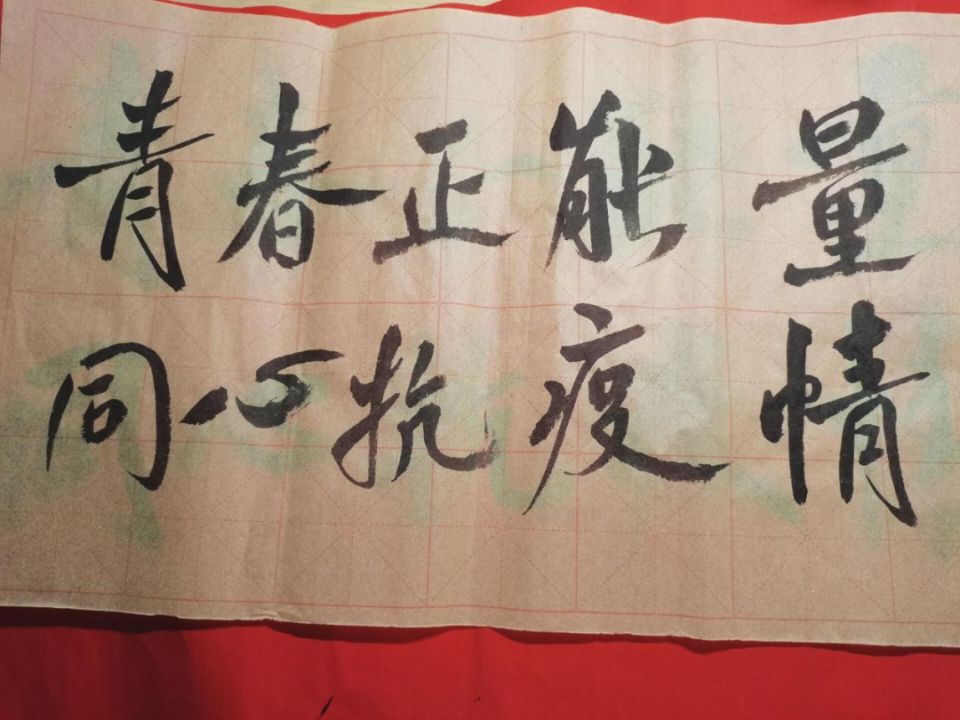 青春正能量
同心抗疫情